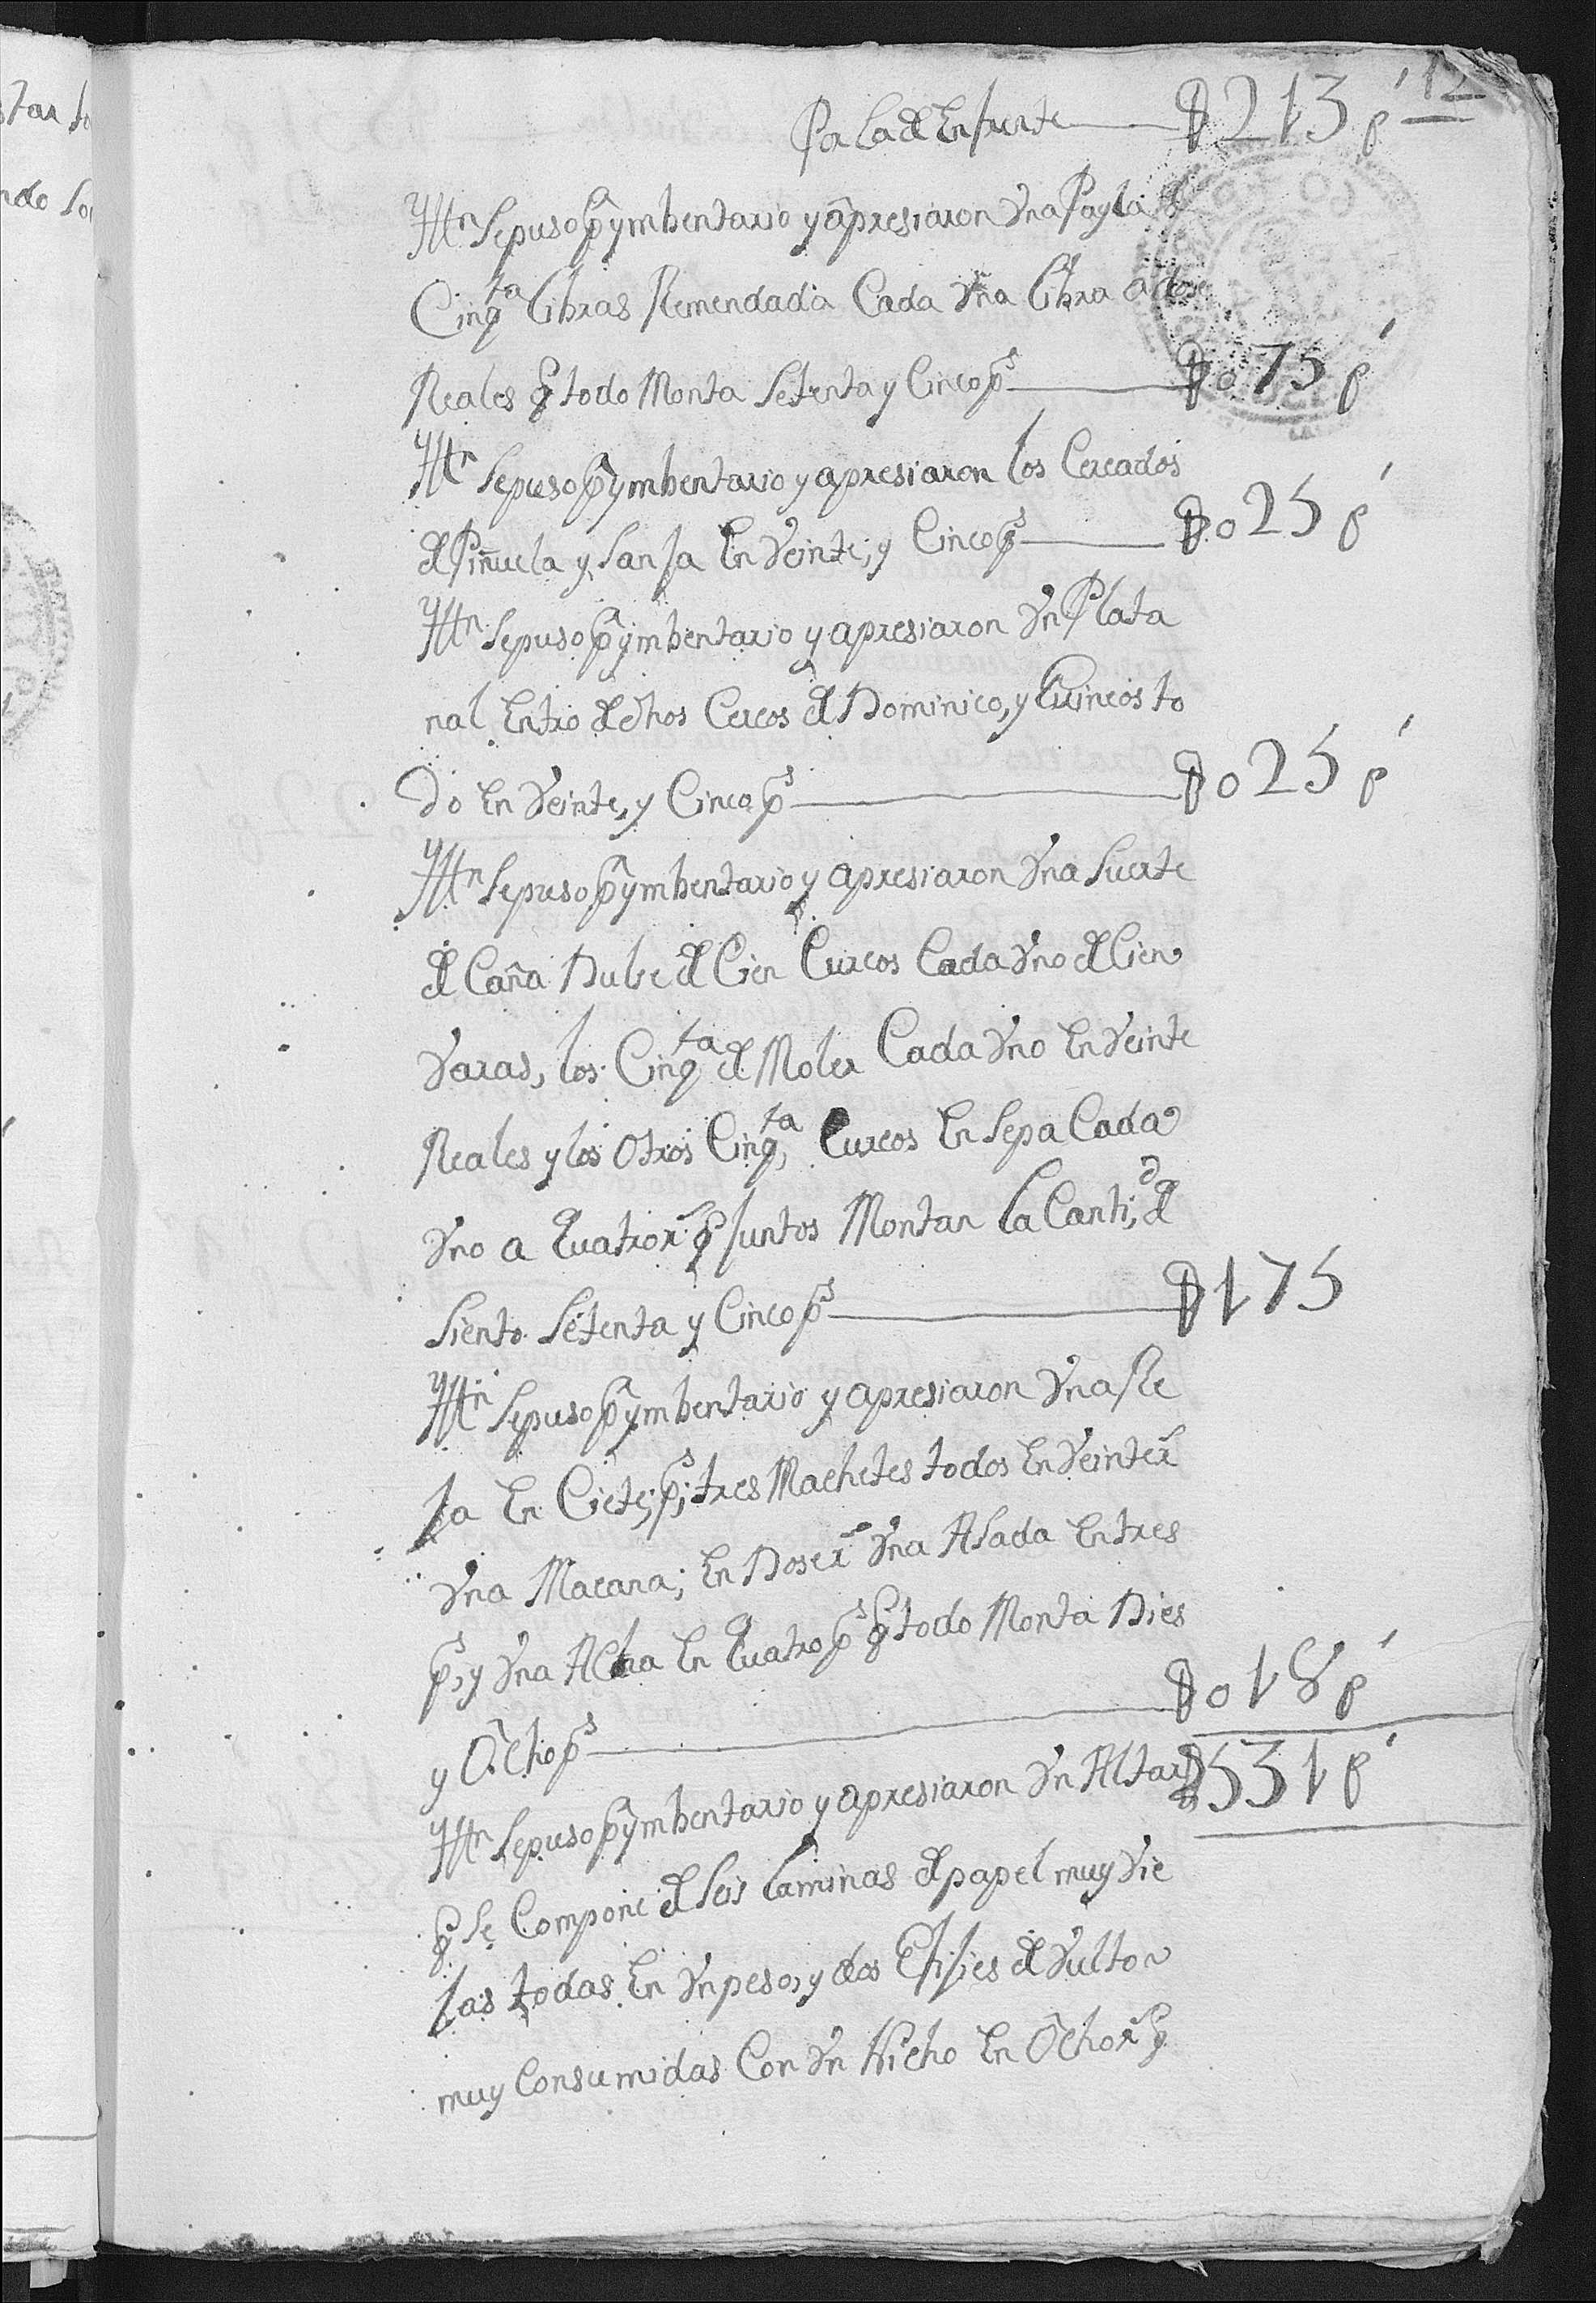 12
Pr la de Enfrente — $213 ps
Yttn Sepuso pr ymbentario y apresiaron Vna Payla de
Cinqta libras Remendada Cada Vna libra a dose
Reales q todo Monta Setenta y Cinco ps — $075 ps
Yttn Sepuso pr ymbentario y apresiaron los Cercados
de Piñuela y Sanja En Veinte, y Cinco ps — $025 ps
Yttn Sepuso pr ymbentario y apresiaron Vn Plata
nal Entro de dhos Cercos de Dominico, y Guineos to
do En Veinte, y Cinco ps — $025 ps
Yttn Sepuso pr ymbentario y apresiaron Vna Suerte
de Caña Dulse de Cien Surcos Cada Vno de Cien
Varas, los Cinqta de Moler Cada Vno En Veinte
Reales y los Otros Cinqta, Surcos En Sepa Cada
Vno a Quatro rs q Juntos Montan la Cantid, de
Siento Setenta y Cinco ps — $175
Yttn Sepuso pr ymbentario y apresiaron Vna Re
ja En Ciete, ps, tres Machetes todos En Veinte rs
Vna Macana; En Dose rs Vna Asada En tres
ps, y Vna Acha En Quatro ps q todo Monta Dies
y Ocho ps — $018 ps
Yttn Sepuso pr ymbentario y apresiaron Vn Altar $531 ps
q Se Compone de Seis laminas de papel muy Vie
jas todas En Vn peso, y dos Efijies de Vulto
muy Consumidas Con Vn Nicho En Ocho rs q